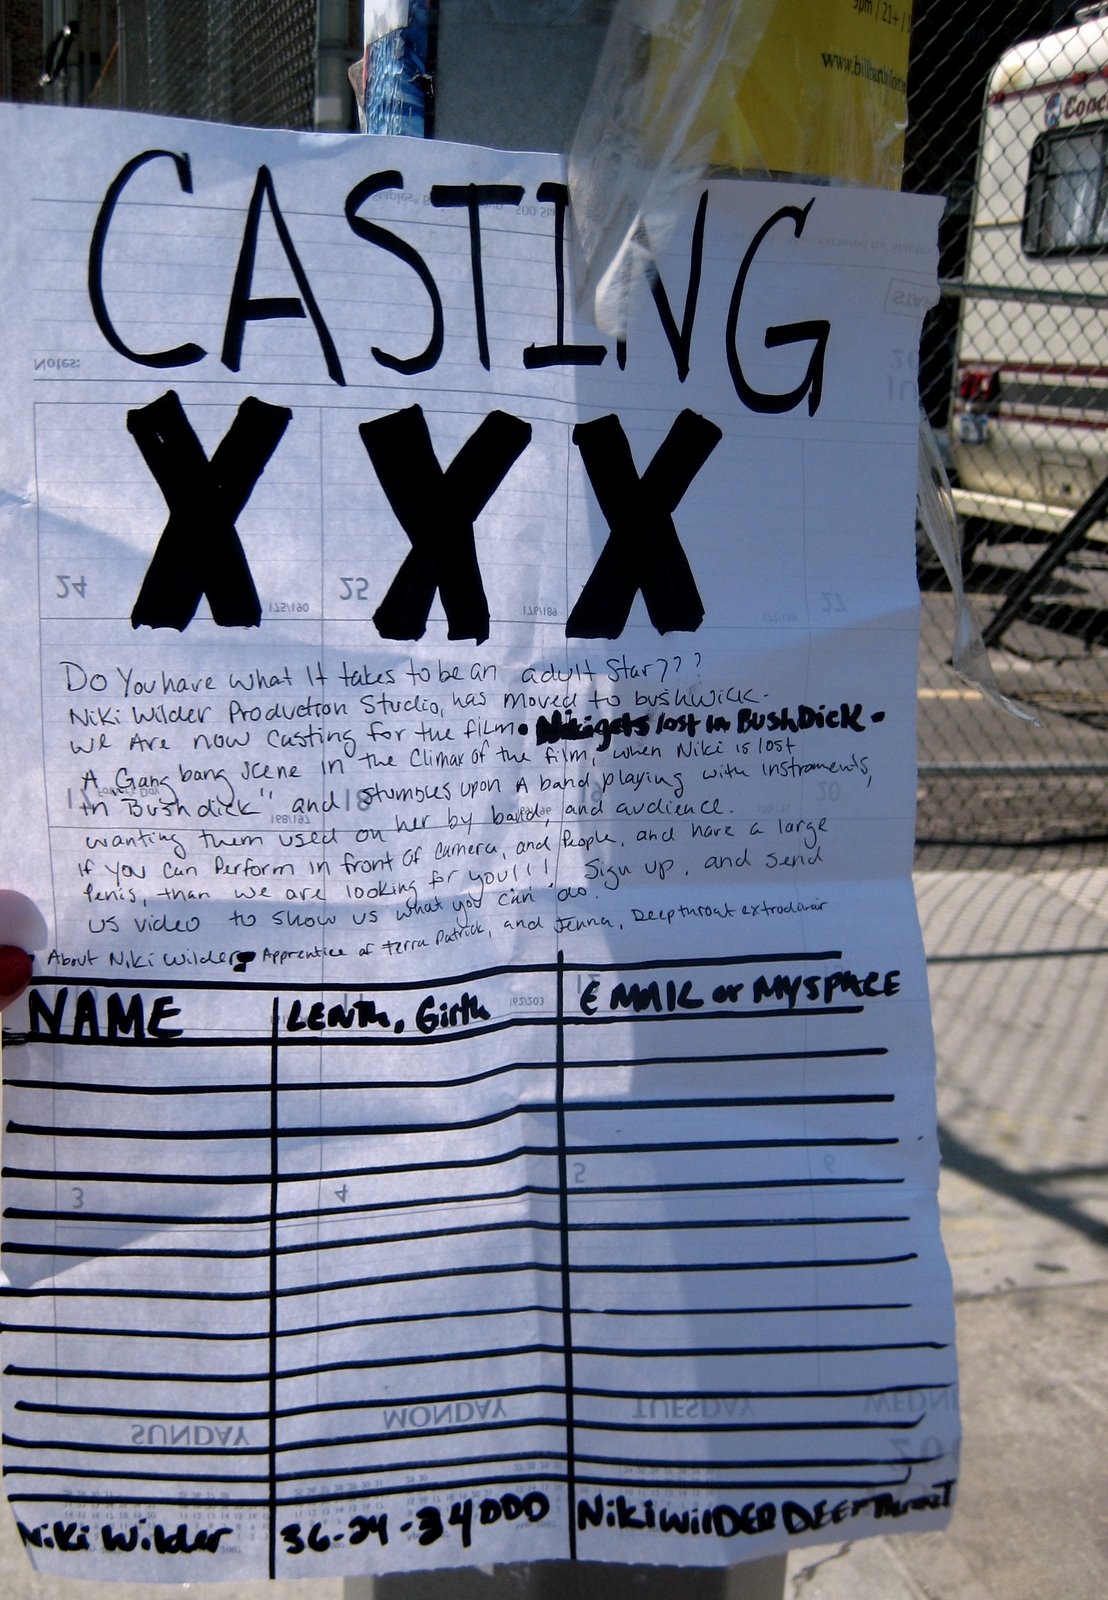 9pm / 21+ /
Coac
CASTING
XXX
Notes:
24
175/190
25
176/189
27
Do You have what It takes to be an adult Star???
Niki Wilder Production Studio, has moved to bushwick-
We Are now Casting for the film • Niki gets lost in BushDick •
A Gang bang scene in the Climax of the film, when Niki is lost
in "Bushdick" and stumbles upon A band playing with instraments,
wanting them used on her by band, and audience.
If you can Perform in front of camera, and People, and have a large
Penis, than we are looking for you!!! Sign up, and send
us video to show us what you can do.
• About Niki Wilder Apprentice of terra Patrick, and Jenna, Deepthroat extrodinair
18
168/197
20
NAME
LENTH, Girth
E MAIL or MYSPACE
162/203
3
4
5
6
SUNDAY
MONDAY
TUESDAY
WEDN
Niki Wilder
36-24-34DDD
Niki WilDER DEEP Throat